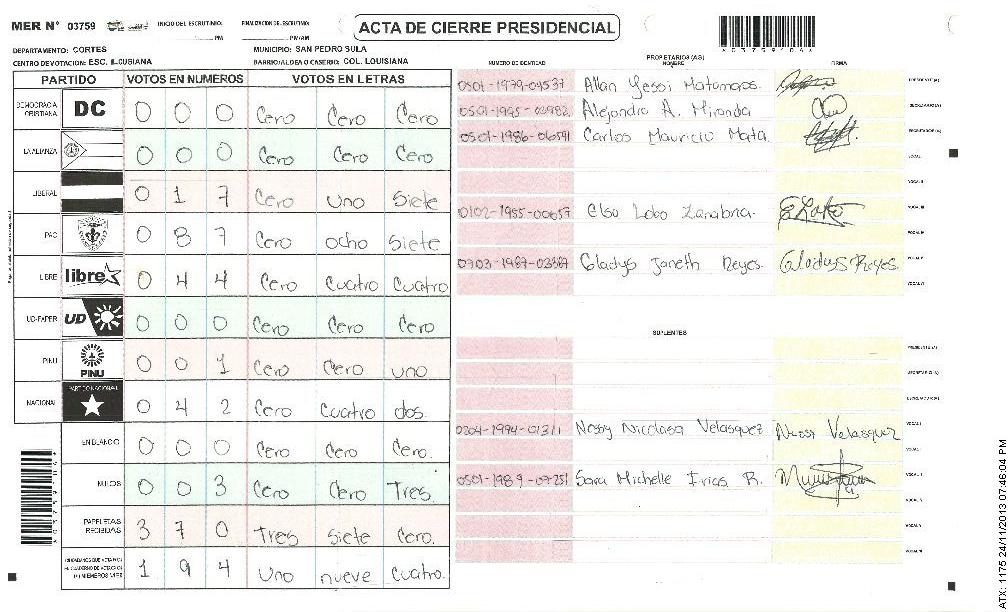 MER N° 03759 INICIO DEL ESCRUTINIO: PM FINALIZACION DEL ESCRUTINIO: PM/AM
ACTA DE CIERRE PRESIDENCIAL
DEPARTAMENTO: CORTES MUNICIPIO: SAN PEDRO SULA
CENTRO DE VOTACION: ESC. ILCUSIANA BARRIO/ALDEA O CASERIO: COL. LOUISIANA
PARTIDO VOTOS EN NUMEROS VOTOS EN LETRAS
DEMOCRACIA CRISTIANA DC 0 0 0 Cero Cero Cero
LA ALIANZA 0 0 0 Cero Cero Cero
LIBERAL 0 1 7 Cero uno Siete
PAC 0 8 7 Cero ocho siete
LIBRE libre 0 4 4 Cero Cuatro Cuatro
UD-FAPER UD 0 0 0 Cero Cero Cero
PINU PINU 0 0 1 Cero Cero uno
NACIONAL PARTIDO NACIONAL 0 4 2 Cero cuatro dos.
EN BLANCO 0 0 0 Cero Cero Cero.
NULOS 0 0 3 Cero Cero Tres.
PAPELETAS RECIBIDAS 3 7 0 Tres siete Cero.
1 9 4 uno nueve cuatro.
PROPIETARIOS (AS)
NUMERO DE IDENTIDAD NOMBRE FIRMA
0501-1979-04537 Allan Yessi Matamoros. PRESIDENTE (A)
Alejandro A. Miranda SECRETARIO (A)
0501-1986-06591 Carlos Mauricio Mata. ESCRUTADOR (A)
VOCAL I
VOCAL II
0102-1955-00657 Elso Lobo Zanabria. E Lobo VOCAL III
VOCAL IV
Gladys Janeth Reyes. Gladys Reyes. VOCAL V
VOCAL VI
SUPLENTES
PRESIDENTE (A)
SECRETARIO (A)
ESCRUTADOR (A)
Nessy Nicolasa Velasquez Nessy Velasquez VOCAL I
0501-1989-07251 Sara Michelle Irias R.
ATX: 1175 24/11/2013 07:46:04 PM